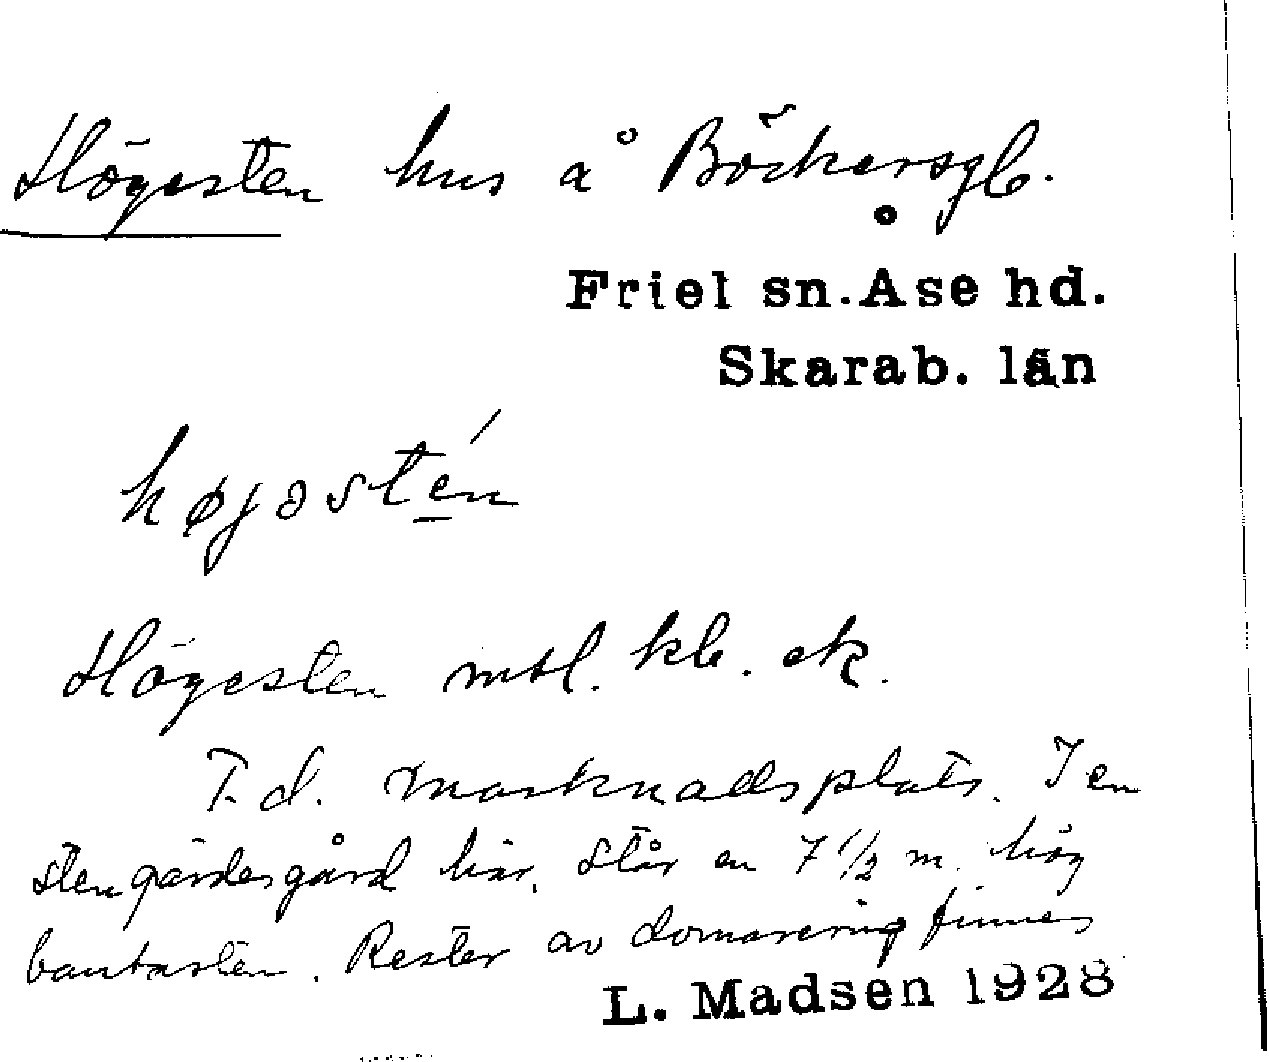 Högesten hus å Böckersgb.
Friel sn. Åse hd.
Skarab. län
højəstén
Högesten mtl. kb. ek.
F.d. marknadsplats. I en
stengärdesgård här, står en 7 1/2 m. hög
bautasten. Rester av domarering finnes
L. Madsen 1928